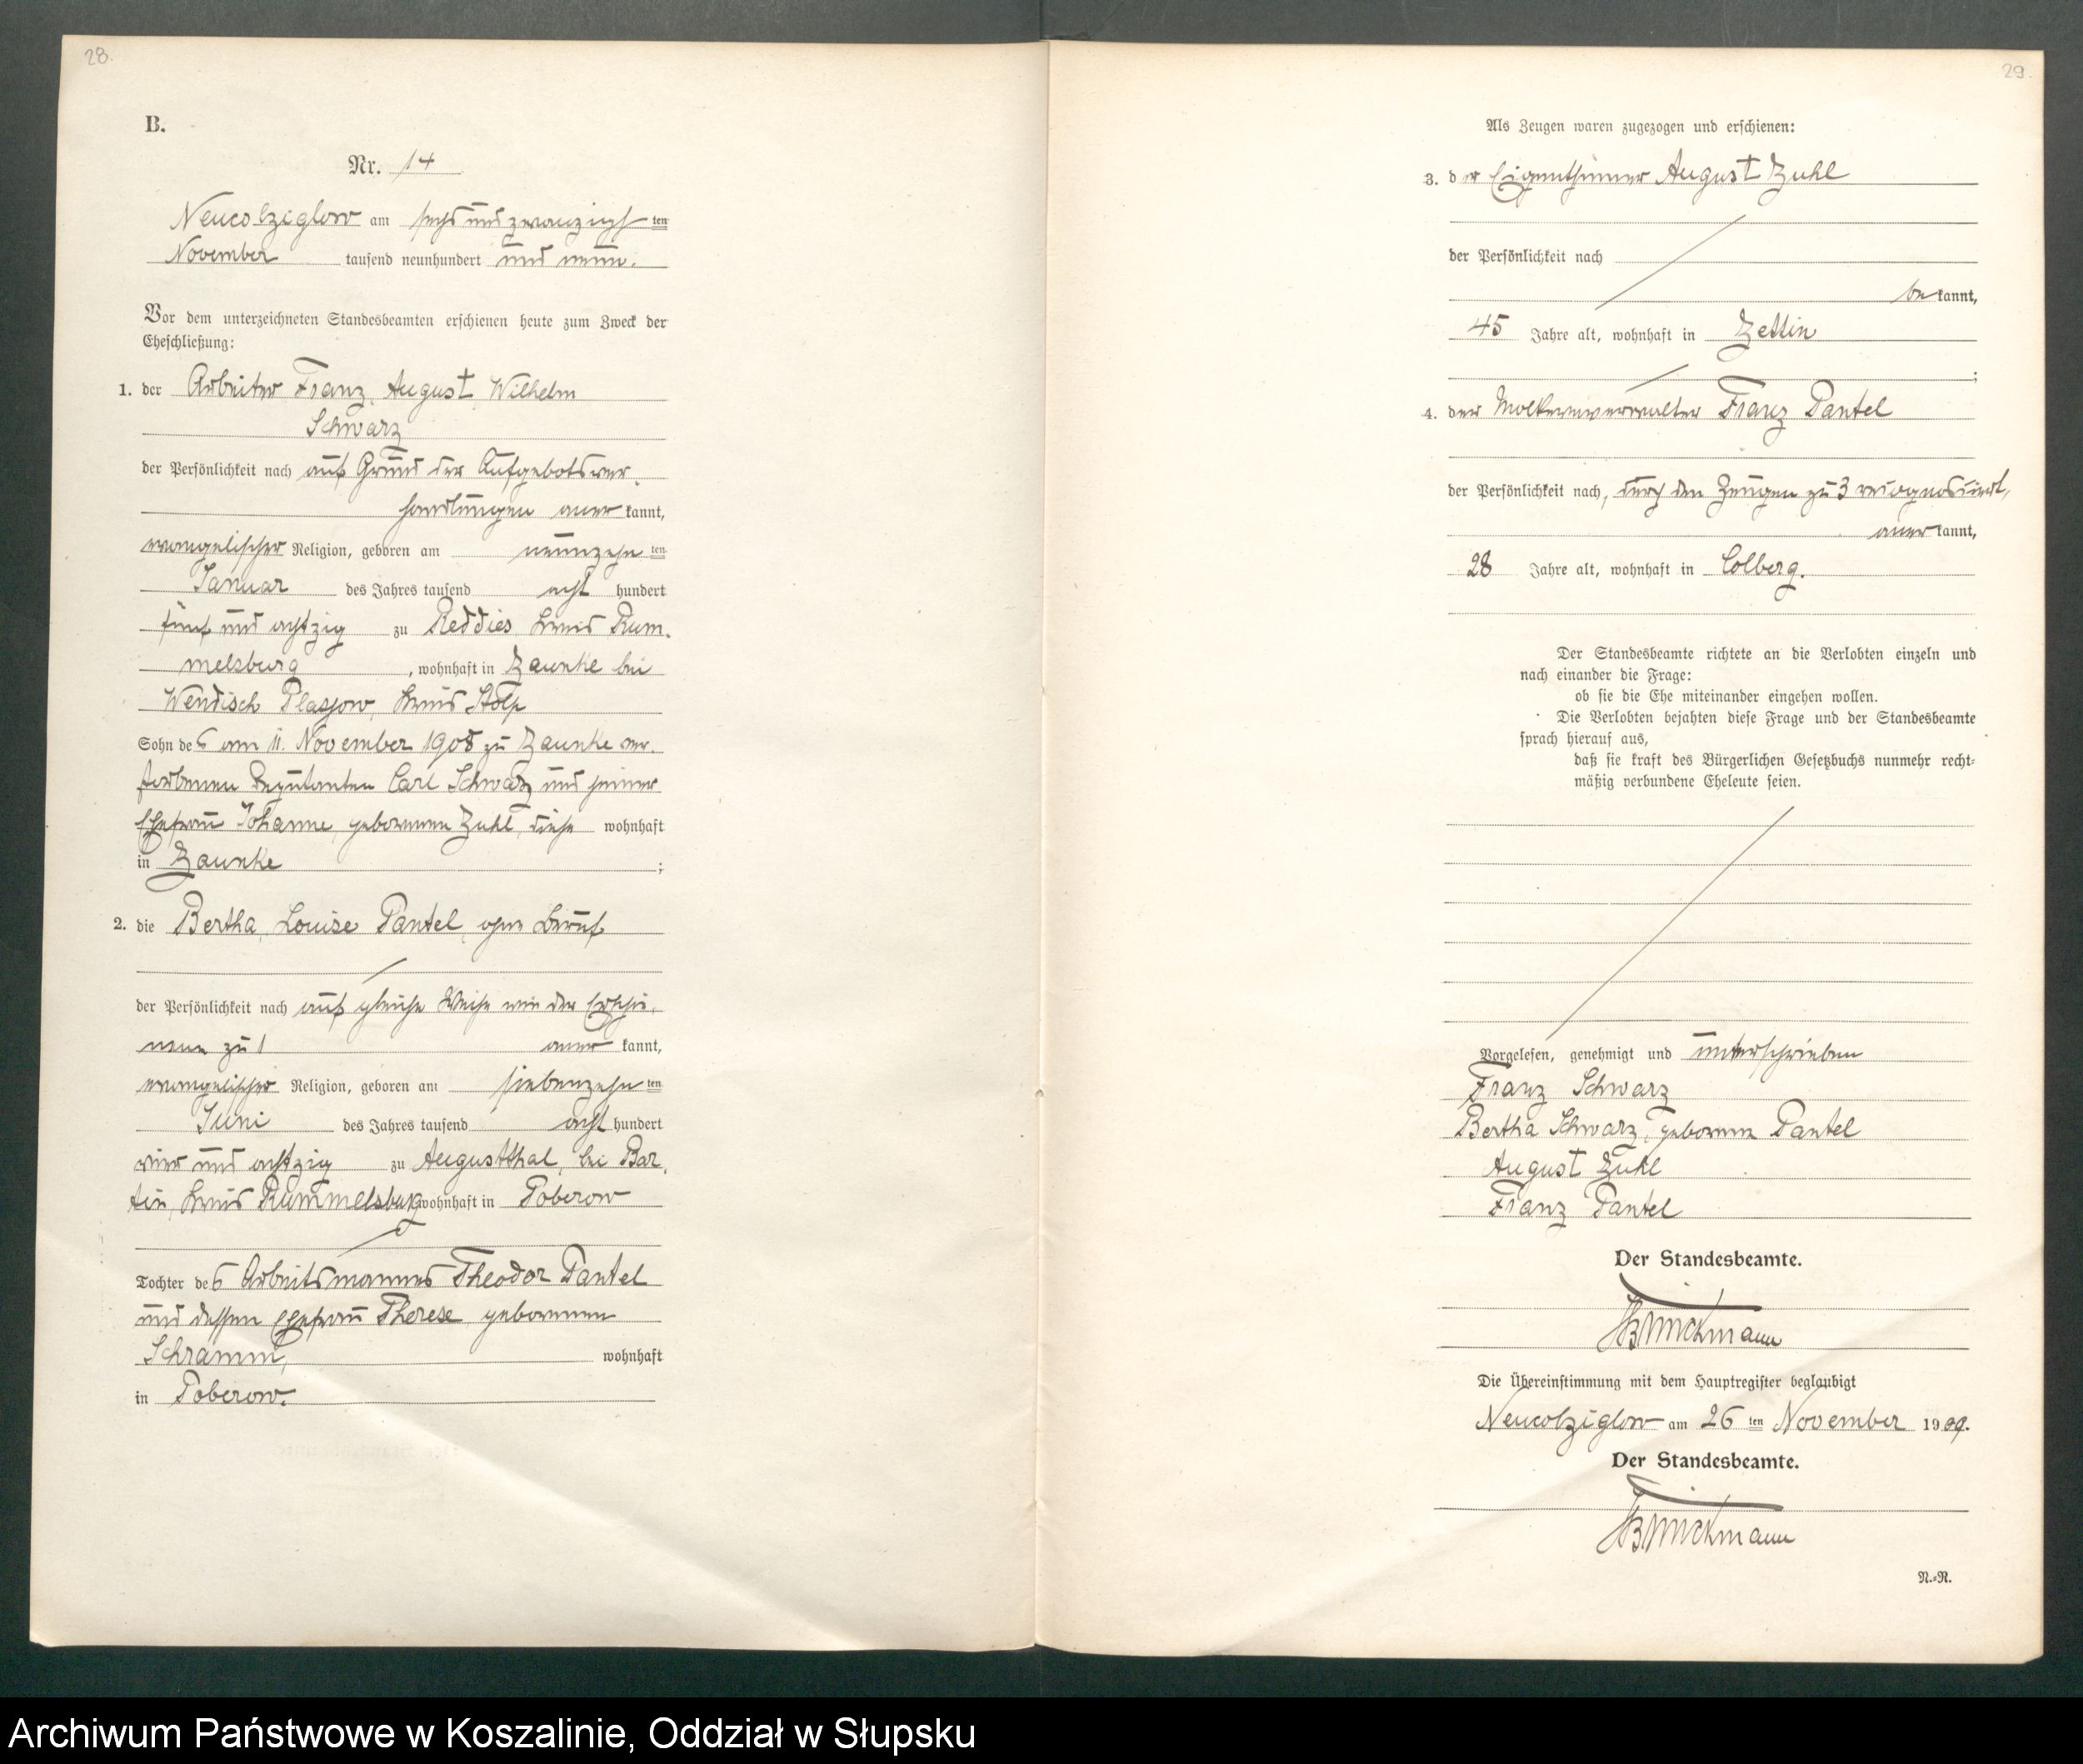 28.
B.
Nr. 14
Neucolziglow am sechs und zwanzigsten
November tausend neunhundert und neun.
Vor dem unterzeichneten Standesbeamten erschienen heute zum Zweck der
Eheschließung:
1. der Arbeiter Franz, August, Wilhelm
Schwarz
der Persönlichkeit nach auf Grund der Aufgebotsver-
handlungen anerkannt,
evangelischer Religion, geboren am neunzehnten
Januar des Jahres tausend acht hundert
fünf und achtzig zu Reddies, Kreis Rum-
melsburg, wohnhaft in Zaunke bei
Wendisch Plassow, Kreis Stolp
Sohn des am 11. November 1908 zu Zaunke ver-
storbenen Deputanten Carl Schwarz und seiner
Ehefrau Johanne, geborenen Zuhl, diese wohnhaft
in Zaunke;
2. die Bertha, Louise Pantel, ohne Beruf
der Persönlichkeit nach auf gleiche Weise wie der Erschie-
nene zu 1 anerkannt,
evangelischer Religion, geboren am siebenzehnten
Juni des Jahres tausend acht hundert
vier und achtzig zu Augustthal, bei Bar-
tin, Kreis Rummelsburg wohnhaft in Poberow
Tochter des Arbeitsmannes Theodor Pantel
und dessen Ehefrau Therese geborenen
Schramm, wohnhaft
in Poberow.
29.
Als Zeugen waren zugezogen und erschienen:
3. der Eigenthümer August Zuhl
der Persönlichkeit nach
bekannt,
45 Jahre alt, wohnhaft in Zettin
;
4. der Molkereiverwalter Franz Pantel
der Persönlichkeit nach, durch den Zeugen zu 3 recognosciert,
anerkannt,
28 Jahre alt, wohnhaft in Colberg.
Der Standesbeamte richtete an die Verlobten einzeln und
nach einander die Frage:
ob sie die Ehe miteinander eingehen wollen.
Die Verlobten bejahten diese Frage und der Standesbeamte
sprach hierauf aus,
daß sie kraft des Bürgerlichen Gesetzbuchs nunmehr recht-
mäßig verbundene Eheleute seien.
Vorgelesen, genehmigt und unterschrieben
Franz Schwarz
Bertha Schwarz, geborene Pantel
August Zuhl
Franz Pantel
Der Standesbeamte.
Brinckmann
Die Übereinstimmung mit dem Hauptregister beglaubigt
Neucolziglow am 26 ten November 1909.
Der Standesbeamte.
Brinckmann
N.-R.
Archiwum Państwowe w Koszalinie, Oddział w Słupsku